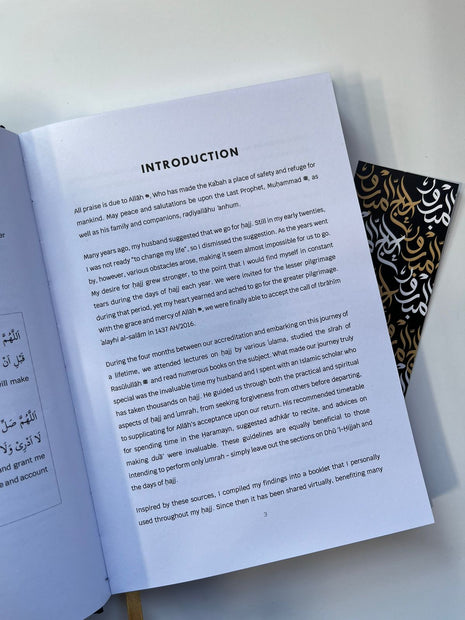 اَللّٰهُمَّ
قَبْلَ أَنْ
will make
اَللّٰهُمَّ صَلِّ
لَا أَدْرِيْ وَلَا
and grant me
e and account
INTRODUCTION
All praise is due to Allāh ﷻ, Who has made the Kabah a place of safety and refuge for
mankind. May peace and salutations be upon the Last Prophet, Muḥammad ﷺ, as
well as his family and companions, raḍiyallāhu ʿanhum.
Many years ago, my husband suggested that we go for ḥajj. Still in my early twenties,
I was not ready "to change my life", so I dismissed the suggestion. As the years went
by, however, various obstacles arose, making it seem almost impossible for us to go.
My desire for ḥajj grew stronger, to the point that I would find myself in constant
tears during the days of ḥajj each year. We were invited for the lesser pilgrimage
during that period, yet my heart yearned and ached to go for the greater pilgrimage.
With the grace and mercy of Allāh ﷻ, we were finally able to accept the call of Ibrāhīm
ʿalayhi al-salām in 1437 AH/2016.
During the four months between our accreditation and embarking on this journey of
a lifetime, we attended lectures on ḥajj by various ʿulama, studied the sīrah of
Rasūlullāh ﷺ and read numerous books on the subject. What made our journey truly
special was the invaluable time my husband and I spent with an Islamic scholar who
has taken thousands on ḥajj. He guided us through both the practical and spiritual
aspects of ḥajj and ʿumrah, from seeking forgiveness from others before departing,
to supplicating for Allāh's acceptance upon our return. His recommended timetable
for spending time in the Haramayn, suggested adhkār to recite, and advices on
making duāʾ were invaluable. These guidelines are equally beneficial to those
intending to perform only ʿumrah – simply leave out the sections on Dhū 'l-Ḥijjah and
the days of ḥajj.
Inspired by these sources, I compiled my findings into a booklet that I personally
used throughout my ḥajj. Since then it has been shared virtually, benefiting many
3